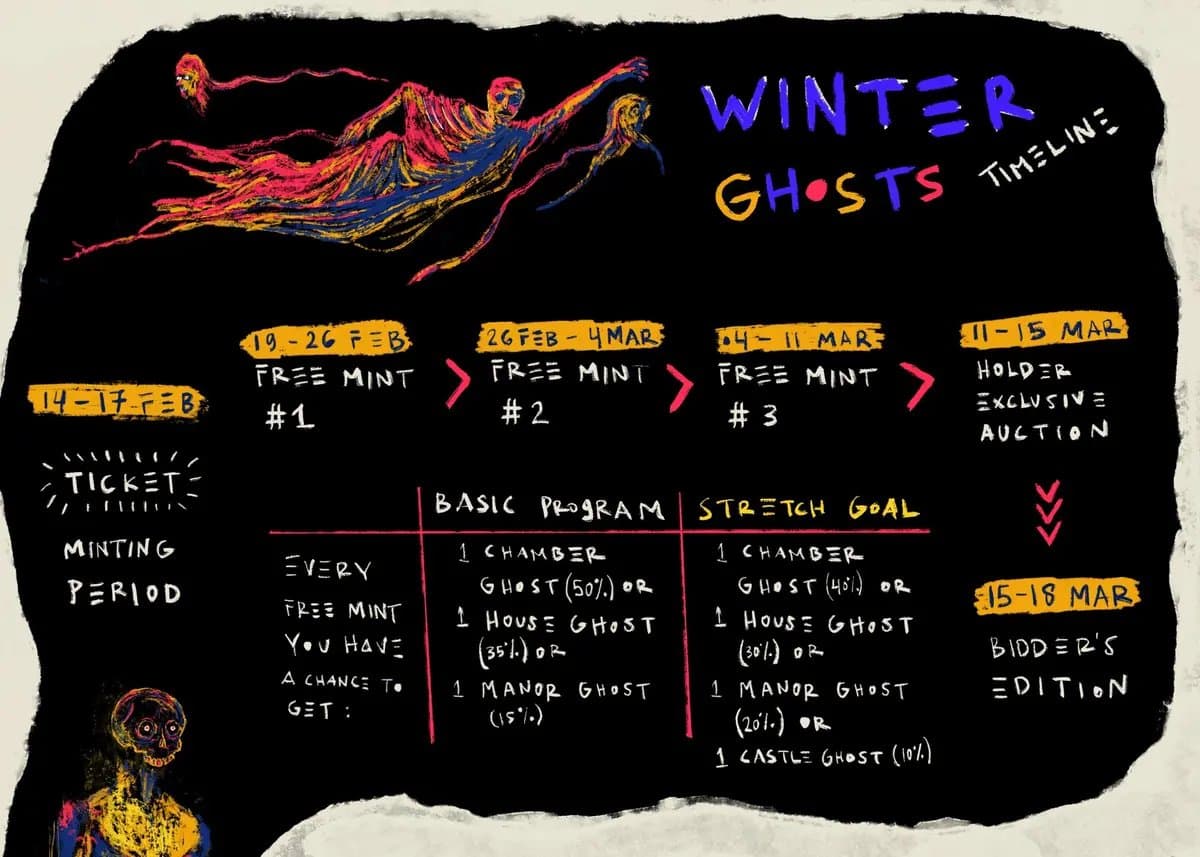 WINTER
GHOSTS
TIMELINE
14-17 FEB
TICKET
MINTING
PERIOD
19-26 FEB
FREE MINT
#1
26 FEB - 4 MAR
FREE MINT
#2
04-11 MAR
FREE MINT
#3
11-15 MAR
HOLDER
EXCLUSIVE
AUCTION
15-18 MAR
BIDDER'S
EDITION
EVERY
FREE MINT
YOU HAVE
A CHANCE TO
GET:
BASIC PROGRAM
1 CHAMBER
GHOST (50%) OR
1 HOUSE GHOST
(35%) OR
1 MANOR GHOST
(15%)
STRETCH GOAL
1 CHAMBER
GHOST (40%) OR
1 HOUSE GHOST
(30%) OR
1 MANOR GHOST
(20%) OR
1 CASTLE GHOST (10%)